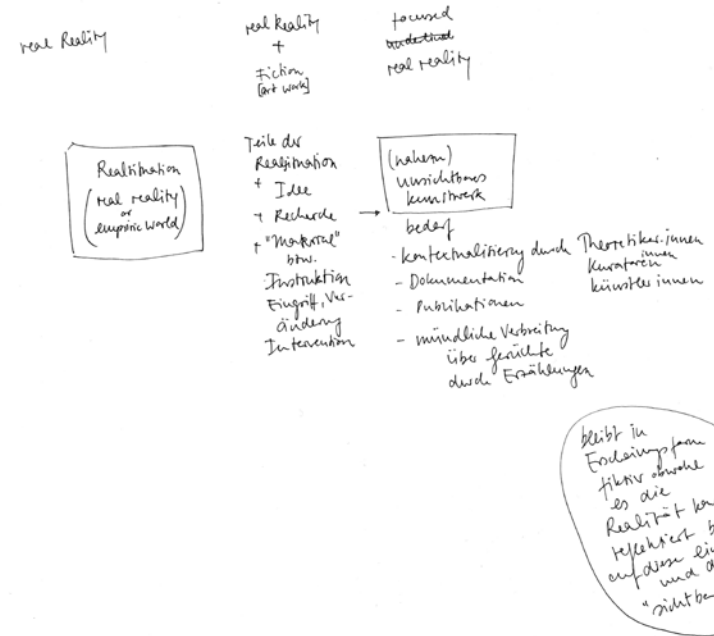 real Reality
real Reality
+
Fiction
[art work]
focused
real reality
Realsituation
(real reality
or
empiric world)
Teile der
Realsituation
+ Idee
+ Recherche
+ "Material"
bzw.
Instruktion
Eingriff, Ver-
änderung
Intervention
→
(nahezu)
unsichtbares
Kunstwerk
bedarf
- Kontextualisierung durch Theoretiker.innen
Kuratoren innen
Künstlerinnen
- Dokumentation
- Publikationen
- mündliche Verbreitung
über Gerüchte
durch Erzählungen
bleibt in
fiktiv obwohl
es die
Realität
reflektiert
auf diese
und